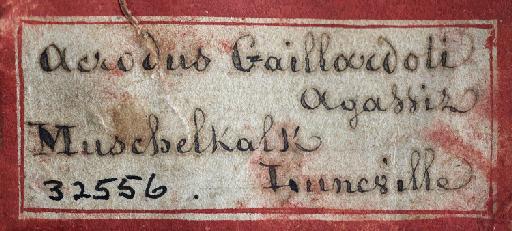 Acrodus Gaillardoti
Agassiz
Muschelkalk
32556. Luneville